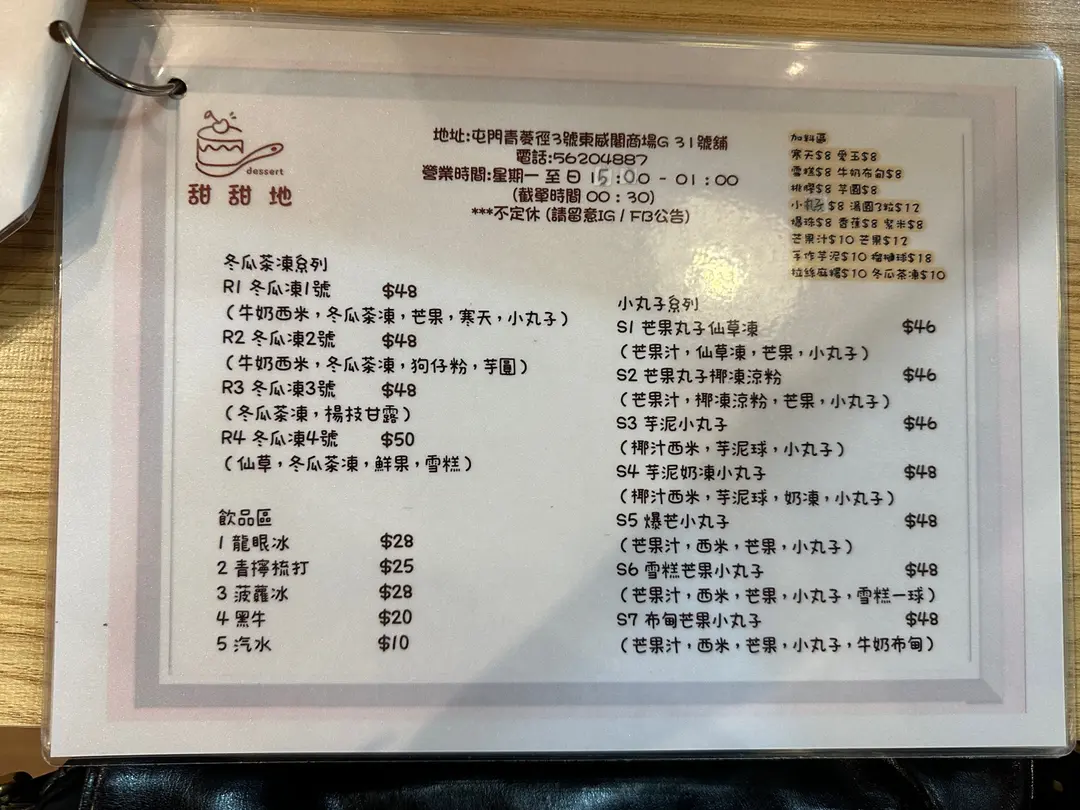 dessert
甜甜地
地址:屯門青菱徑3號東威閣商場G 31號舖
電話:56204887
營業時間:星期一 至 日 15:00 - 01:00
(截單時間 00:30)
***不定休 (請留意IG / FB公告)
加料區
寒天$8 愛玉$8
雪糕$8 牛奶布甸$8
桃膠$8 芋圓$8
小丸子 $8 湯圓3粒$12
爆珠$8 香蕉$8 紫米$8
芒果汁$10 芒果$12
手作芋泥$10 榴槤球$18
拉絲麻糬$10 冬瓜茶凍$10
冬瓜茶凍系列
R1 冬瓜凍1號 $48
(牛奶西米,冬瓜茶凍,芒果,寒天,小丸子)
R2 冬瓜凍2號 $48
(牛奶西米,冬瓜茶凍,狗仔粉,芋圓)
R3 冬瓜凍3號 $48
(冬瓜茶凍,楊枝甘露)
R4 冬瓜凍4號 $50
(仙草,冬瓜茶凍,鮮果,雪糕)
飲品區
1 龍眼冰 $28
2 青檸梳打 $25
3 菠蘿冰 $28
4 黑牛 $20
5 汽水 $10
小丸子系列
S1 芒果丸子仙草凍 $46
(芒果汁,仙草凍,芒果,小丸子)
S2 芒果丸子椰凍涼粉 $46
(芒果汁,椰凍涼粉,芒果,小丸子)
S3 芋泥小丸子 $46
(椰汁西米,芋泥球,小丸子)
S4 芋泥奶凍小丸子 $48
(椰汁西米,芋泥球,奶凍,小丸子)
S5 爆芒小丸子 $48
(芒果汁,西米,芒果,小丸子)
S6 雪糕芒果小丸子 $48
(芒果汁,西米,芒果,小丸子,雪糕一球)
S7 布甸芒果小丸子 $48
(芒果汁,西米,芒果,小丸子,牛奶布甸)